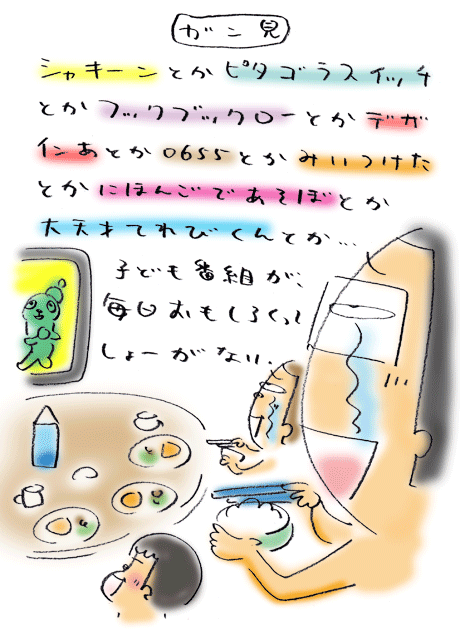 ガン見
シャキーンとかピタゴラスイッチ
とかフックブックローとかデザ
インあとか0655とかみいつけた
とかにほんごであそぼとか
大天才てれびくんとか…
子ども番組が、
毎日おもしろくって
しょーがない。